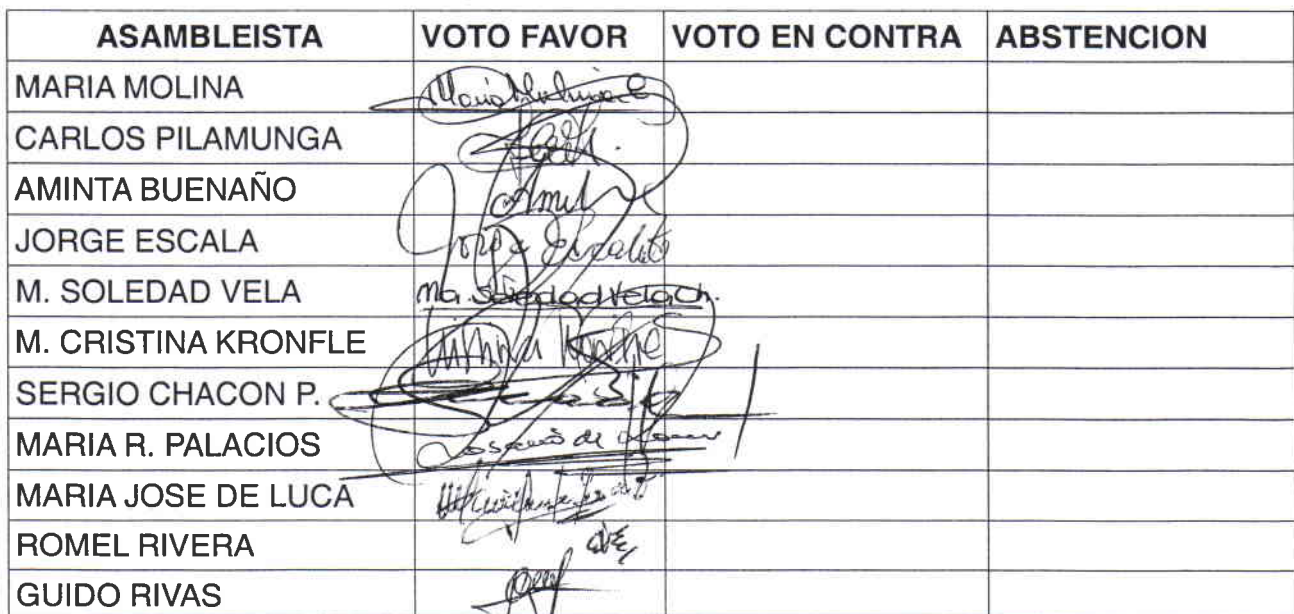 ASAMBLEISTA VOTO FAVOR VOTO EN CONTRA ABSTENCION
MARIA MOLINA Maria Molina C
CARLOS PILAMUNGA
AMINTA BUENAÑO
JORGE ESCALA Jorge Escala
M. SOLEDAD VELA Ma. Soledad Vela Ch.
M. CRISTINA KRONFLE
SERGIO CHACON P.
MARIA R. PALACIOS
MARIA JOSE DE LUCA
ROMEL RIVERA
GUIDO RIVAS